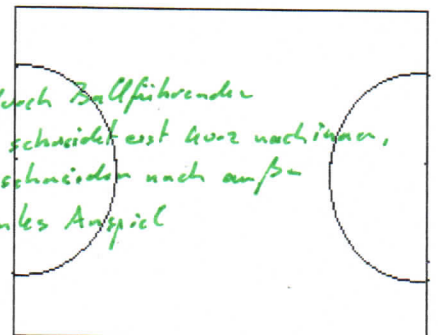 durch Ballführenden
schneidet erst kurz nach innen,
schneiden nach außen
Anspiel